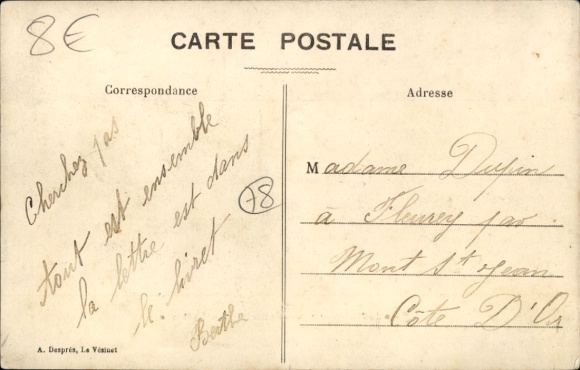 8€
CARTE POSTALE
Correspondance
Cherchez pas
tout est ensemble
la lettre est dans
le livret
Berthe
78
A. Desprès, Le Vésinet
Adresse
Madame Dupin
à Fleurey par
Mont St Jean
Côte D'Or